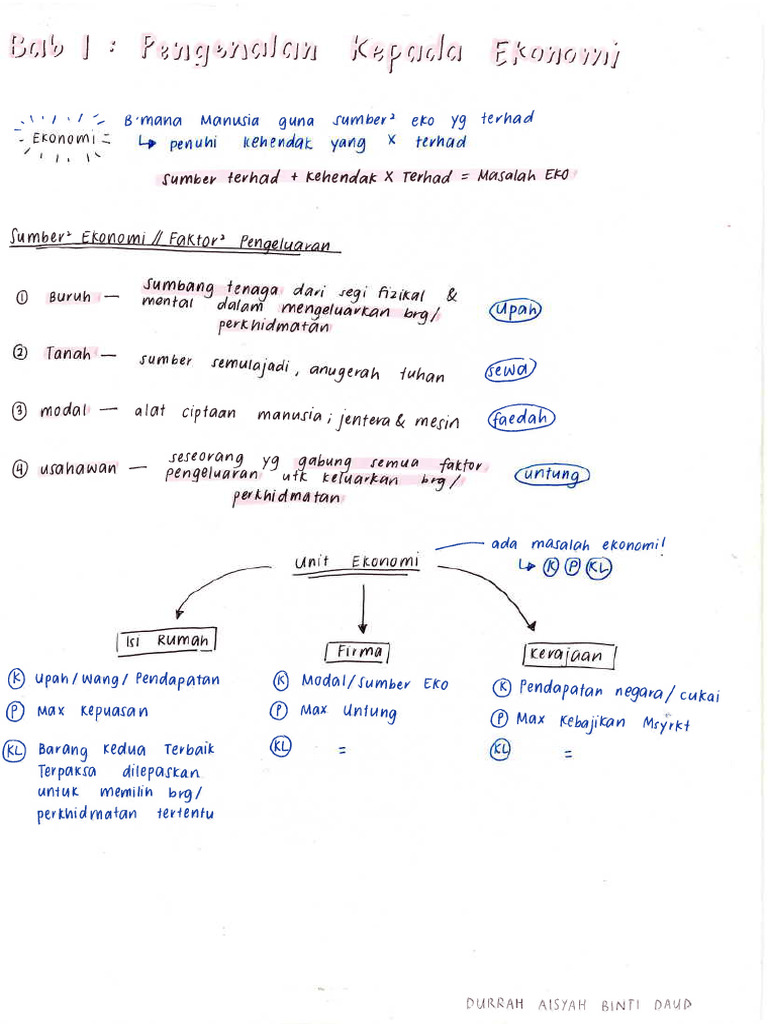 Bab 1 : Pengenalan Kepada Ekonomi
Ekonomi
B'mana Manusia guna sumber² eko yg terhad
↳ penuhi kehendak yang X terhad
Sumber terhad + Kehendak X Terhad = Masalah Eko
Sumber² Ekonomi // Faktor² Pengeluaran
① Buruh — Sumbang tenaga dari segi fizikal &
mental dalam mengeluarkan brg/
perkhidmatan
upah
② Tanah — sumber semulajadi, anugerah tuhan
sewa
③ modal — alat ciptaan manusia ; jentera & mesin
faedah
④ usahawan — seseorang yg gabung semua faktor
pengeluaran utk keluarkan brg/
perkhidmatan
untung
Unit Ekonomi
ada masalah ekonomi!
↳ K P KL
Isi Rumah
K Upah / Wang / Pendapatan
P Max Kepuasan
KL Barang Kedua Terbaik
Terpaksa dilepaskan
untuk memilih brg/
perkhidmatan tertentu
Firma
K Modal / Sumber Eko
P Max Untung
KL =
Kerajaan
K Pendapatan negara / cukai
P Max Kebajikan Msyrkt
KL =
DURRAH AISYAH BINTI DAUD